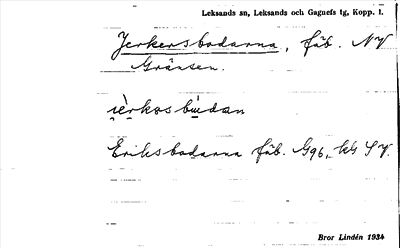 Leksands sn, Leksands och Gagnefs tg, Kopp. l.
Jerkersbodarna, fäb. NV
Gränsen.
Eriksbodarna fäb. G96, kb SV.
Bror Lindén 1934